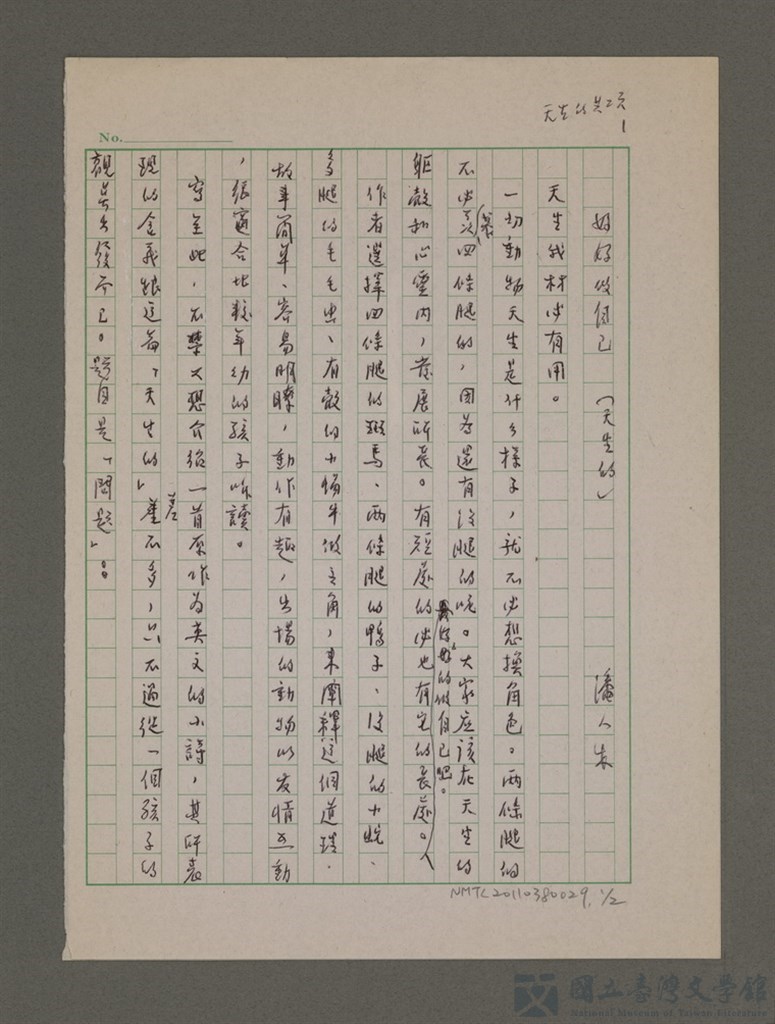 天生的 共2頁
1
No.
好好做自己 (天生的) 潘人木
天生我材必有用。
一切動物天生是什么樣子,就不必想換角色。兩條腿的
不必羨慕四條腿的,因為還有沒腿的呢。大家應該在天生的
軀殼和心靈內,發展所長。有短處的必也有它的長處。人
好好的做自己吧。
作者選擇四條腿的斑馬、兩條腿的鴨子、沒腿的小蛇、
多腿的毛毛虫、有殼的小蝸牛做主角,來闡釋這個道理.
故事簡單、容易明瞭,動作有趣,出場的動物以友情互動
,很適合比較年幼的孩子聽讀。
寫至此,不禁又想介紹一首原作為英文的小詩,其所表
現的含義跟這篇「天生的」差不多,只不過從一個孩子的
親身出發而已。題目是「問題」。
NMTL20110380029, 1/2
國立臺灣文學館
National Museum of Taiwan Literature